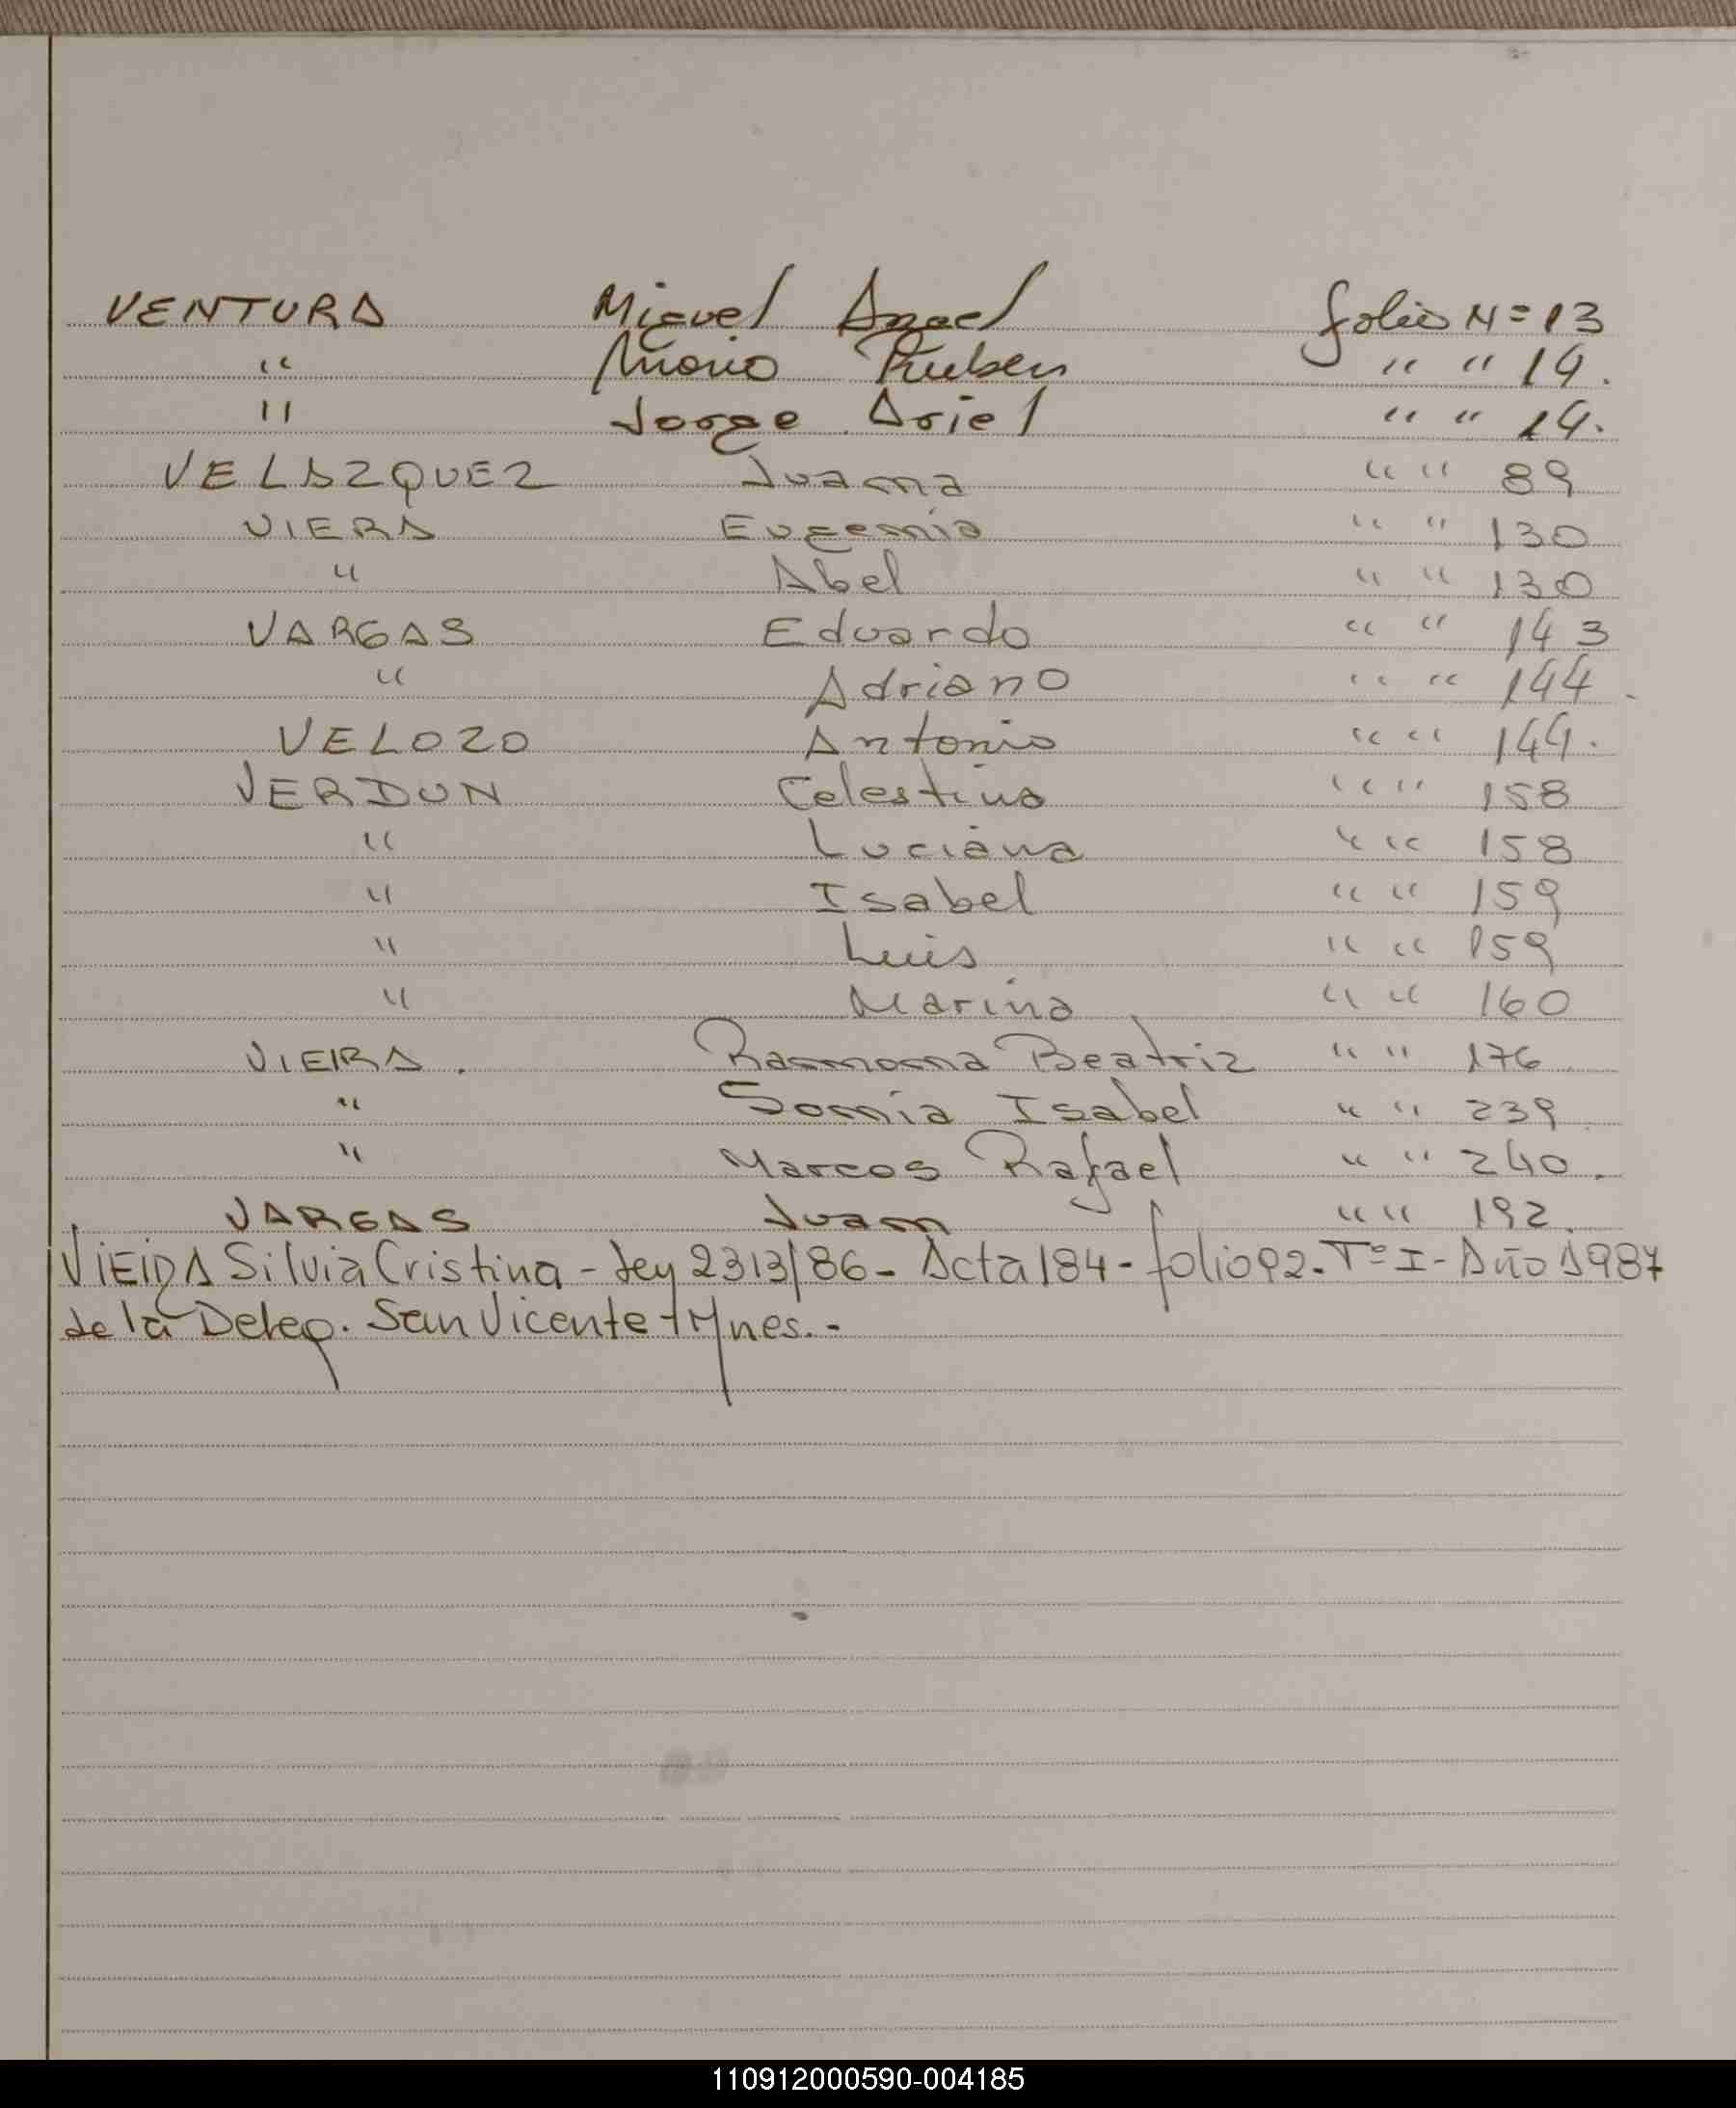 VENTURA Miguel Angel folio N= 13
" Mario Ruben " " 14.
" Jorge Ariel " " 14.
VELAZQUEZ Juana " " 89
VIERA Eugenia " " 130
" Abel " " 130
VARGAS Eduardo " " 143
" Adriano " " 144
VELOZO Antonio " " 144.
VERDUN Celestino " " 158
" Luciana " " 158
" Isabel " " 159
" Luis " " 159
" Marina " " 160
VIEIRA. Ramona Beatriz " " 176
" Sonia Isabel " " 239
" Marcos Rafael " " 240.
VARGAS Juan " " 192.
VIEIRA Silvia Cristina - Ley 2313/86 - Acta 184 - folio 92. Tº I - Año 1987
de la Deleg. San Vicente - Mnes. -
110912000590-004185